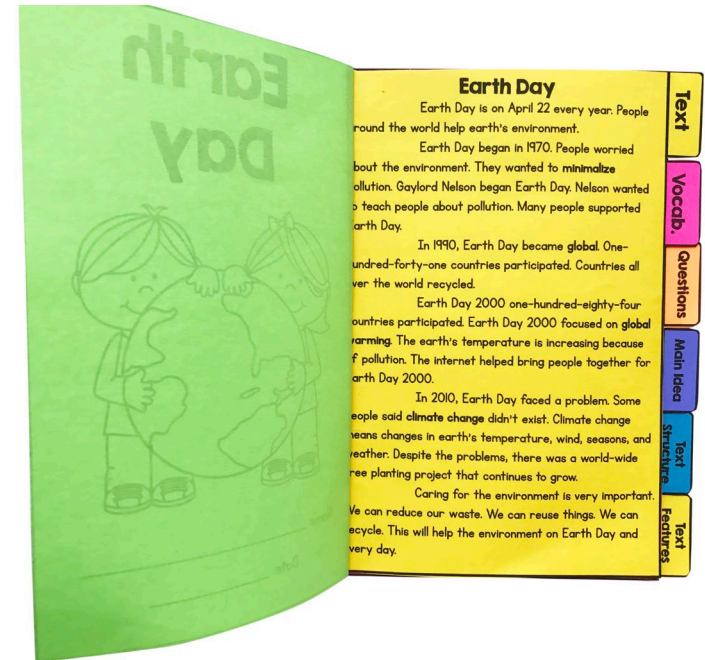 Earth
Day
Date
Earth Day
Earth Day is on April 22 every year. People
round the world help earth's environment.
Earth Day began in 1970. People worried
bout the environment. They wanted to minimalize
ollution. Gaylord Nelson began Earth Day. Nelson wanted
o teach people about pollution. Many people supported
arth Day.
In 1990, Earth Day became global. One-
undred-forty-one countries participated. Countries all
ver the world recycled.
Earth Day 2000 one-hundred-eighty-four
ountries participated. Earth Day 2000 focused on global
arming. The earth's temperature is increasing because
f pollution. The internet helped bring people together for
arth Day 2000.
In 2010, Earth Day faced a problem. Some
eople said climate change didn't exist. Climate change
eans changes in earth's temperature, wind, seasons, and
eather. Despite the problems, there was a world-wide
ree planting project that continues to grow.
Caring for the environment is very important.
We can reduce our waste. We can reuse things. We can
ecycle. This will help the environment on Earth Day and
very day.
Text
Vocab.
Questions
Main Idea
Text
Structure
Text
Features